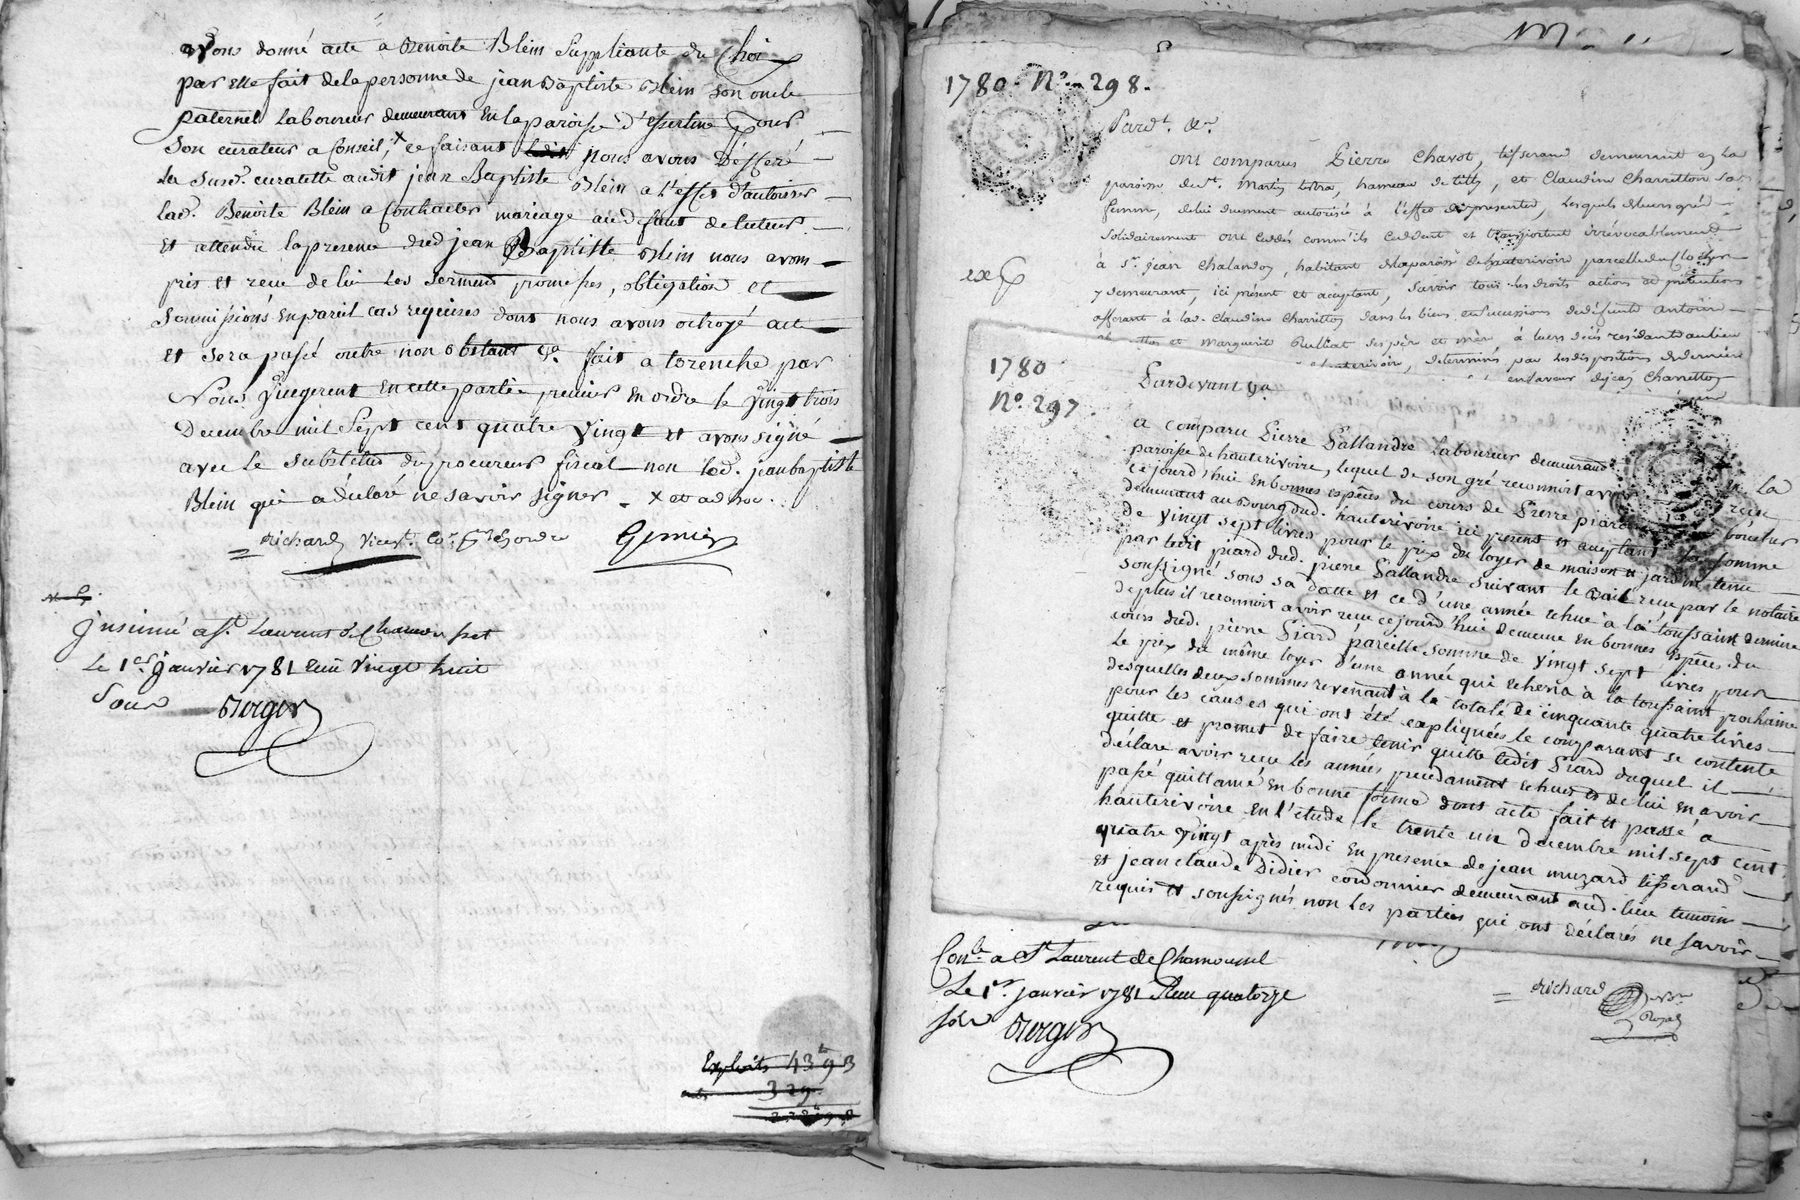 avons donné acte a Benoite Blein Suppliante du Choix
par elle fait de la personne de jean Baptiste Blein son oncle
paternel Laboureur demeurant En la paroisse d'Essertine Pour
Son curateur a Conseil, x ce faisant nous avons defferé
la Susd. curatelle audit jean Baptiste Blein a l'effet d'autoriser
lad. Benoite Blein a Contracter mariage au defaut de tuteur.
Et attendu la presence dud jean Baptiste Blein nous avons
pris et recu de lui les serment promesses, obligation et
Soumissions En pareil cas requises dont nous avons octroyé acte
Et sera passé outre non obstant &a. fait a torenche par
Nous Jugegerent En cette partie premier En ordre le Vingt trois
Decembre mil Sept cent quatre Vingt et avons signé
avec le Substitud du procureur fiscal non led. jean baptiste
Blein qui a déclaré ne savoir signer x et ad hoc.
Richard Gonin
Insinué a St. Laurent de Chamousset
Le 1er janvier 1781 Reçu Vingt huit
Sous Berger
Exploits 43 9 3
329
M.
1780. No. 298.
Pardt. &a.
ont comparus Pierre Chavot, tisserand demeurant en La
paroisse de St. Martin Lestra, hameau de tilly, et Claudine Charretton sa
femme, de lui dument autorisée à l'effet des presentes, Lesquels de leurs gré
solidairement ont cedés comm'ils cedent et transportent irrévocablement
à Sr. jean Chalandon, habitant de la paroisse de hauterivoire parcelle du Clocher
y demeurant, ici présent et acceptant, Savoir tous les droits actions et prétentions
afferant à lad. Claudine Charretton dans les biens et Successions de défunts antoine
et Marguerite Rulliat ses père et mère, à leurs décès residants au lieu
hauterivoire, determinés par les dispositions de derniere
en faveur de jean Charretton
1780
No. 297
Pardevant &a
a comparu Pierre Gallandre Laboureur demeurant en La
paroisse de hauterivoire, lequel de son gré reconnoit avoir reçu
ce jourd'hui En bonnes espèces du cours de Pierre piard boucher
demeurant au Bourg dud. hauterivoire ici present et acceptant la somme
de Vingt sept Livres pour le prix du loyer de maison et jardin tenu
par ledit piard dud. pierre Gallandre suivant le Bail reçu par le notaire
soussigné sous sa datte et ce d'une année echue à la toussaint derniere
de plus il reconnoit avoir recu cejourd'hui de meme En bonnes espèces du
cours dud. pierre Piard pareille somme de Vingt sept Livres pour
Le prix du même loyer d'une année qui echera à la toussaint prochaine
desquelles deux sommes revenant à la totale de cinquante quatre livres
pour les causes qui ont été expliquées le comparant se contente
quitte et promet de faire tenir quitte ledit Piard duquel il
déclare avoir recu les années precedament echues et de lui en avoir
passé quittance En bonne forme dont acte fait et passé à
hauterivoire En l'étude le trente un decembre mil sept cent
quatre Vingt après midi En presence de jean muzard tisserand
et jean claude Didier cordonnier demeurant aud. lieu temoins
requis et soussignés non les parties qui ont déclarés ne savoir
Conle. a St Laurent de Chamousset
Le 1er. janvier 1781 Reçu quatorze
sols Berger
Richard